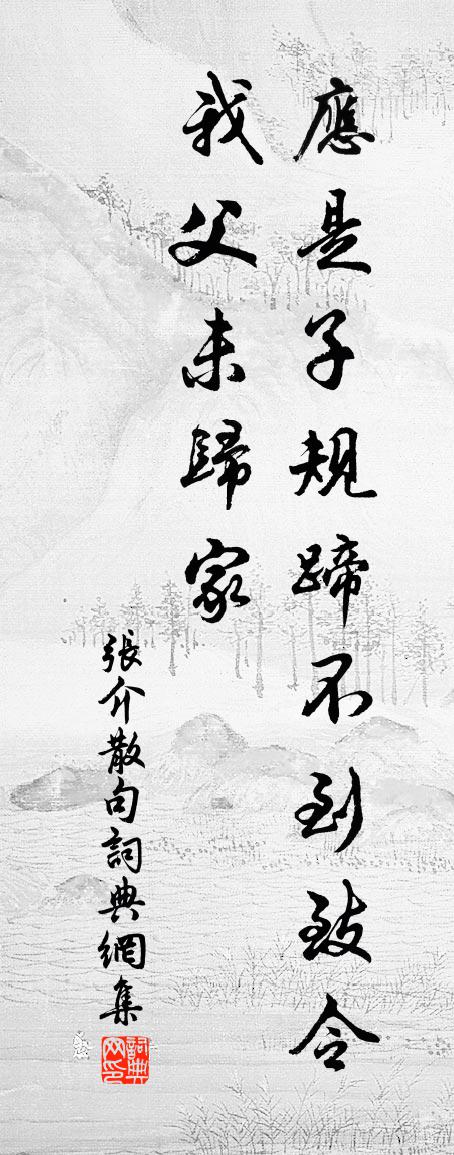 應是子規蹄不到致令
我父未歸家
張介散句詞典網集
詞典网印